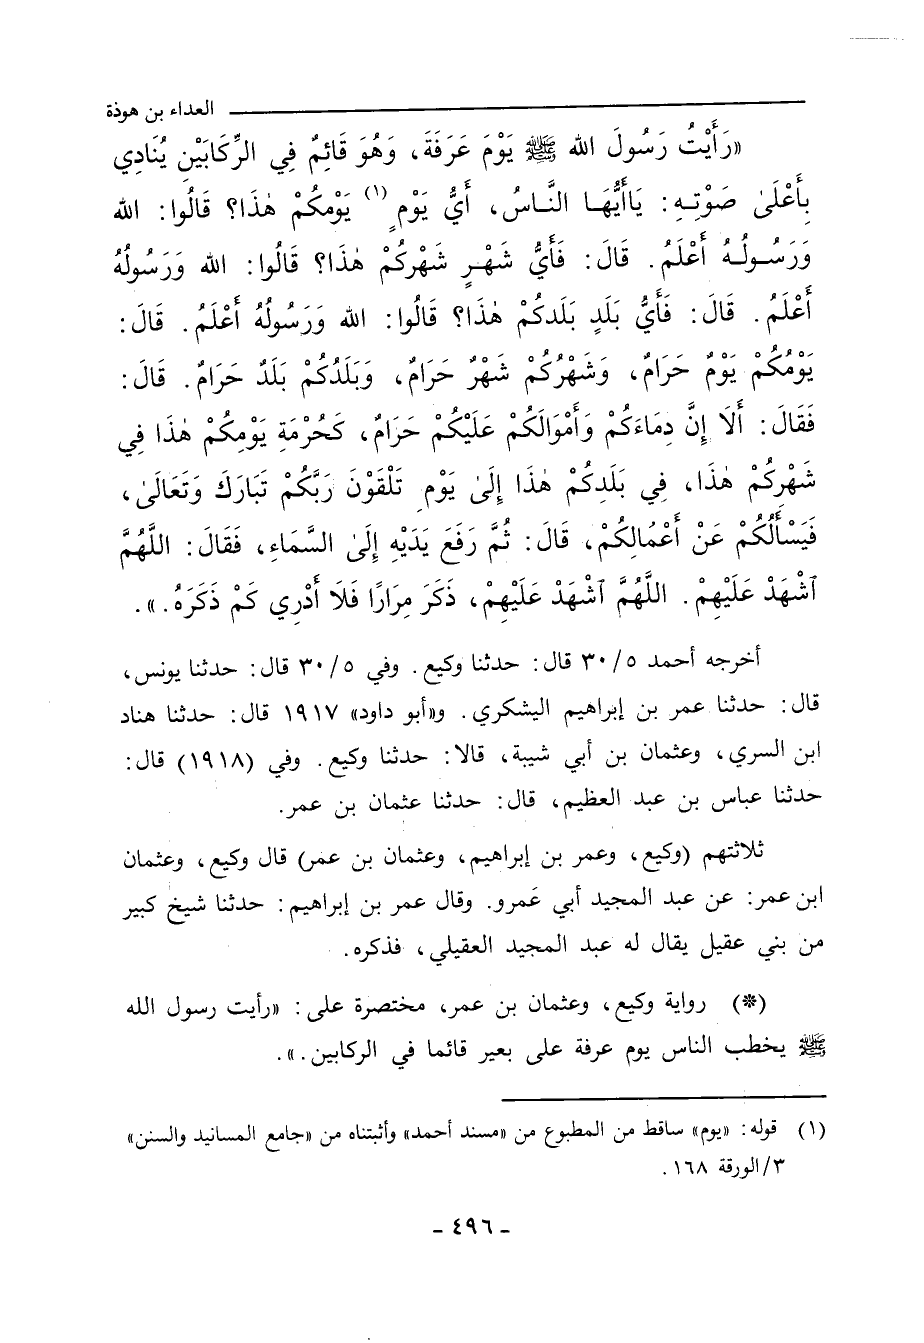 العداء بن هوذة
«رَأَيْتُ رَسُولَ الله ﷺ يَوْمَ عَرَفَةَ، وَهُوَ قَائِمٌ فِي الرِّكَابَيْنِ يُنَادِي
بِأَعْلَىٰ صَوْتِهِ: يَاأَيُّهَا النَّاسُ، أَيُّ يَوْمٍ (١) يَوْمِكُمْ هٰذَا؟ قَالُوا: الله
وَرَسُولُهُ أَعْلَمُ. قَالَ: فَأَيُّ شَهْرٍ شَهْرُكُمْ هٰذَا؟ قَالُوا: الله وَرَسُولُهُ
أَعْلَمُ. قَالَ: فَأَيُّ بَلَدٍ بَلَدُكُمْ هٰذَا؟ قَالُوا: الله وَرَسُولُهُ أَعْلَمُ. قَالَ:
يَوْمُكُمْ يَوْمٌ حَرَامٌ، وَشَهْرُكُمْ شَهْرٌ حَرَامٌ، وَبَلَدُكُمْ بَلَدٌ حَرَامٌ. قَالَ:
فَقَالَ: أَلَا إِنَّ دِمَاءَكُمْ وَأَمْوَالَكُمْ عَلَيْكُمْ حَرَامٌ، كَحُرْمَةِ يَوْمِكُمْ هٰذَا فِي
شَهْرِكُمْ هٰذَا، فِي بَلَدِكُمْ هٰذَا إِلَىٰ يَوْمِ تَلْقَوْنَ رَبَّكُمْ تَبَارَكَ وَتَعَالَىٰ،
فَيَسْأَلُكُمْ عَنْ أَعْمَالِكُمْ، قَالَ: ثُمَّ رَفَعَ يَدَيْهِ إِلَىٰ السَّمَاءِ، فَقَالَ: اللَّهُمَّ
ٱشْهَدْ عَلَيْهِمْ. اللَّهُمَّ ٱشْهَدْ عَلَيْهِمْ، ذَكَرَ مِرَارًا فَلَا أَدْرِي كَمْ ذَكَرَهُ.».
أخرجه أحمد ٥/٣٠ قال: حدثنا وكيع. وفي ٥/٣٠ قال: حدثنا يونس،
قال: حدثنا عمر بن إبراهيم اليشكري. و«أبو داود» ١٩١٧ قال: حدثنا هناد
ابن السري، وعثمان بن أبي شيبة، قالا: حدثنا وكيع. وفي (١٩١٨) قال:
حدثنا عباس بن عبد العظيم، قال: حدثنا عثمان بن عمر.
ثلاثتهم (وكيع، وعمر بن إبراهيم، وعثمان بن عمر) قال وكيع، وعثمان
ابن عمر: عن عبد المجيد أبي عَمرو. وقال عمر بن إبراهيم: حدثنا شيخ كبير
من بني عقيل يقال له عبد المجيد العقيلي، فذكره.
(*) رواية وكيع، وعثمان بن عمر، مختصرة على: «رأيت رسول الله
ﷺ يخطب الناس يوم عرفة على بعير قائما في الركابين.».
(١) قوله: «يوم» ساقط من المطبوع من «مسند أحمد» وأثبتناه من «جامع المسانيد والسنن»
٣/الورقة ١٦٨.
- ٤٩٦ -